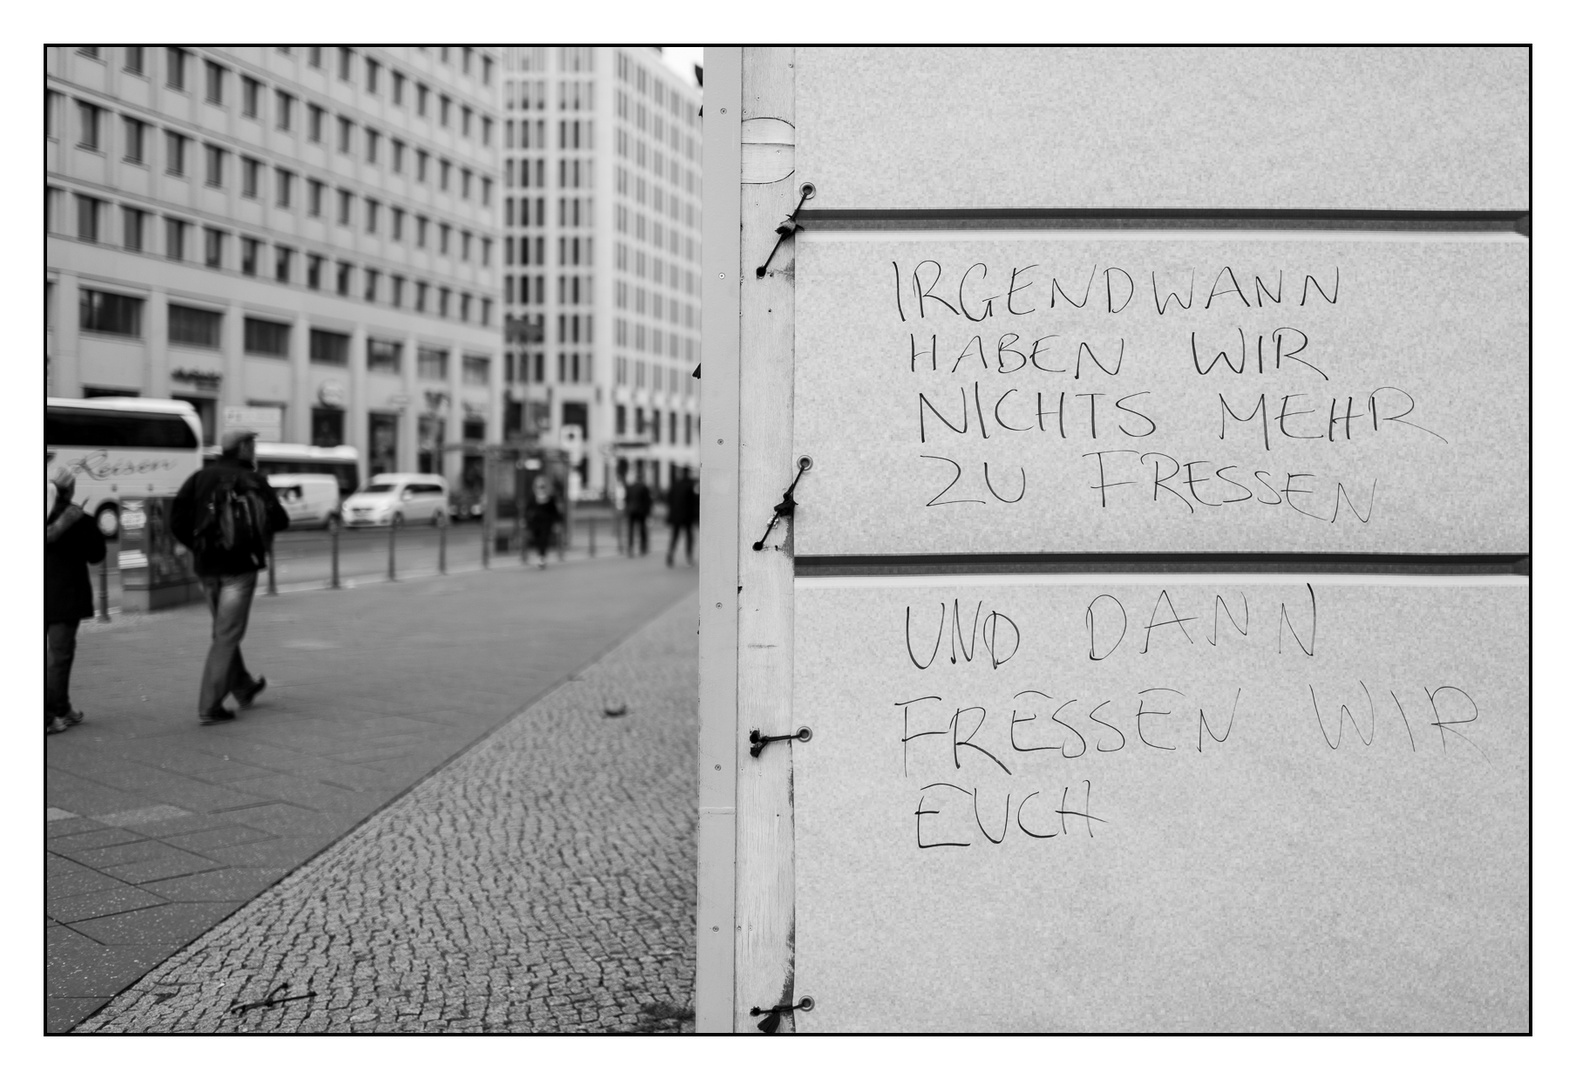 Reisen
IRGENDWANN
HABEN WIR
NICHTS MEHR
ZU FRESSEN
UND DANN
FRESSEN WIR
EUCH